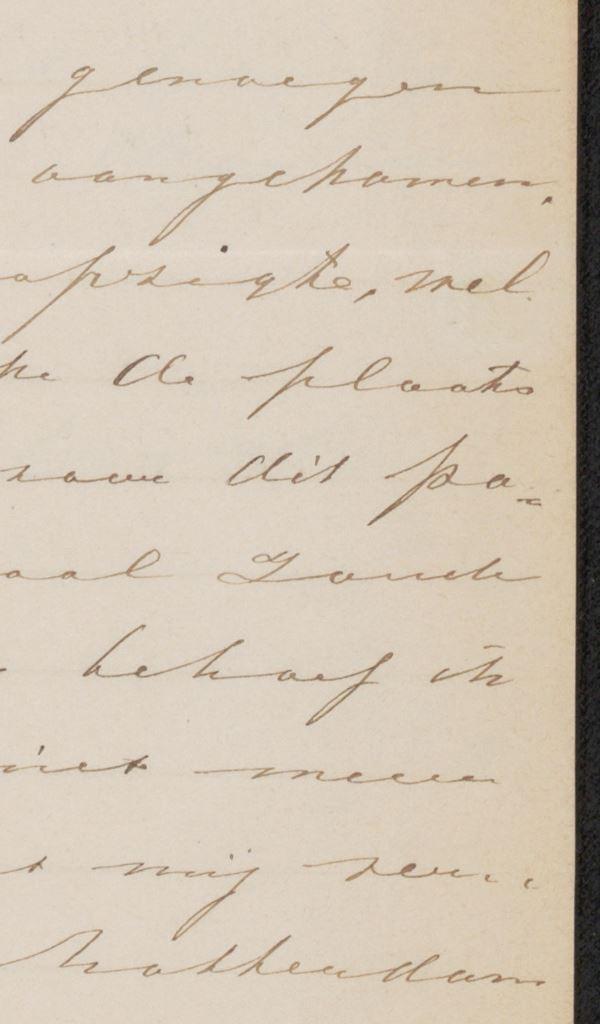 genoegen
aangekomen.
opzigte, wel
ke de plaats
dit pa=
aal Zoude
behoef ik
niet meer
mij
Rotterdam